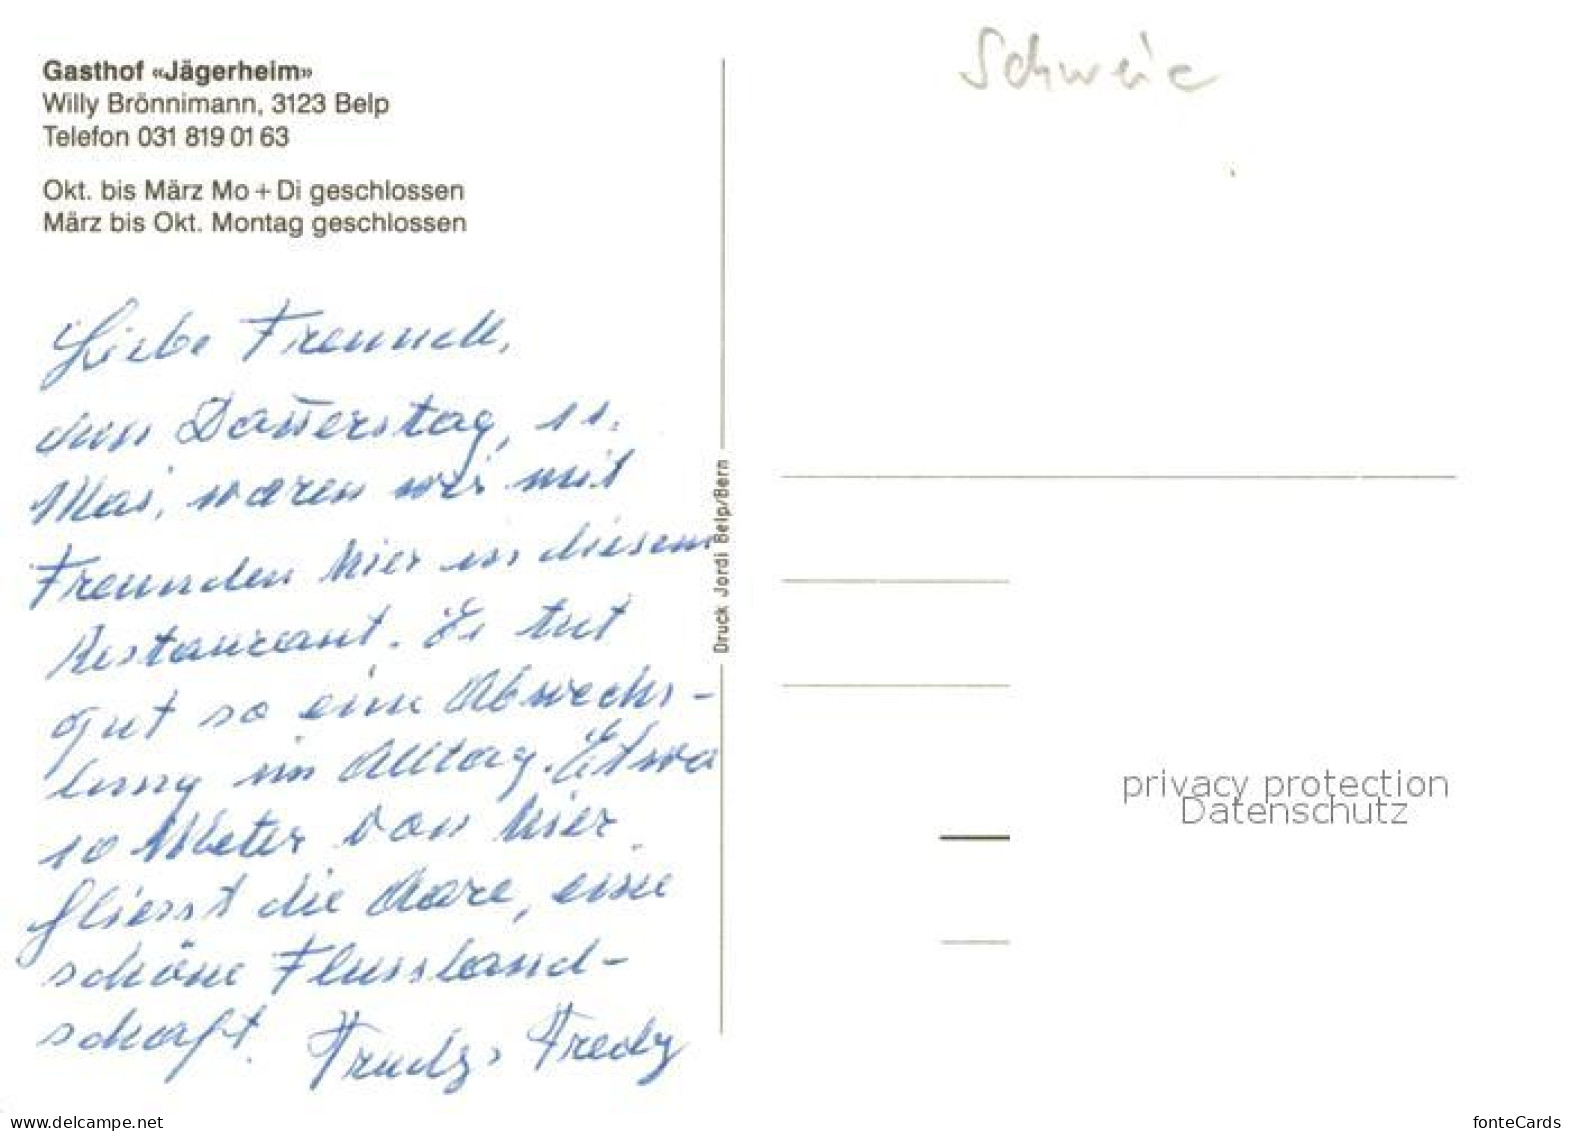 Gasthof «Jägerheim»
Willy Brönnimann, 3123 Belp
Telefon 031 819 01 63
Okt. bis März Mo + Di geschlossen
März bis Okt. Montag geschlossen
Liebe Freunde,
den Donnerstag, 11.
Mai, waren wir mit
Freunden hier in diesem
Restaurant. Es tut
gut so eine Abwechs-
lung im Alltag. Etwa
10 Meter von hier
fliesst die Aare, eine
schöne Flussland-
schaft. Trudy, Fredy
Druck Jordi Belp/Bern
Schweiz
privacy protection
Datenschutz
www.delcampe.net
fonteCards